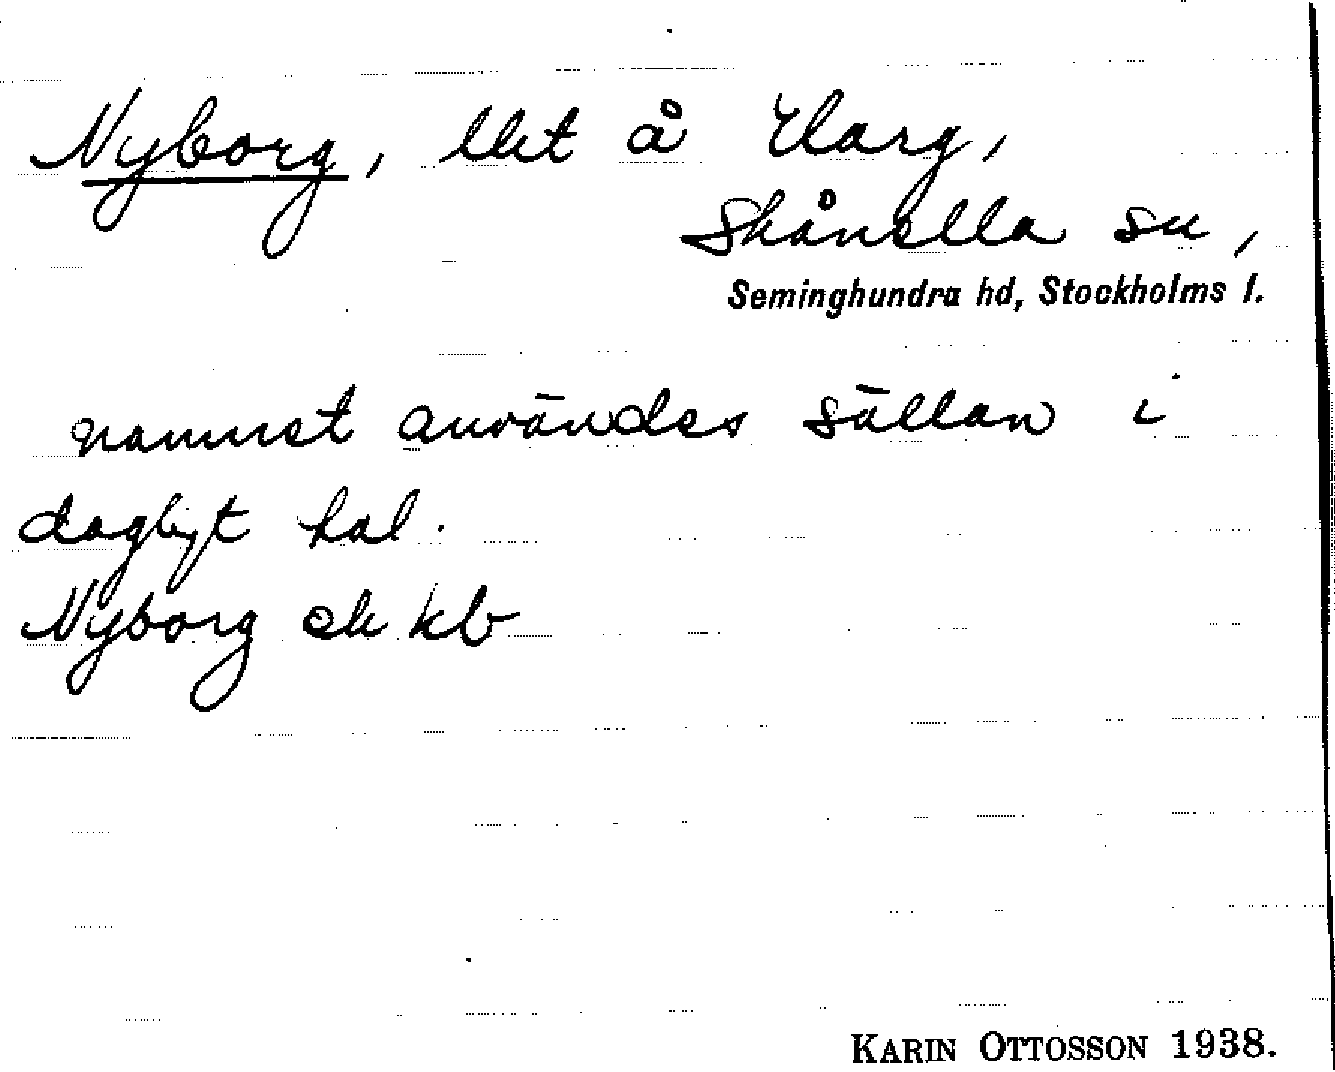 Nyborg, lht å Harg,
Skånella sn,
Seminghundra hd, Stockholms l.
namnet användes sällan i
dagligt tal.
Nyborg ek kb
KARIN OTTOSSON 1938.